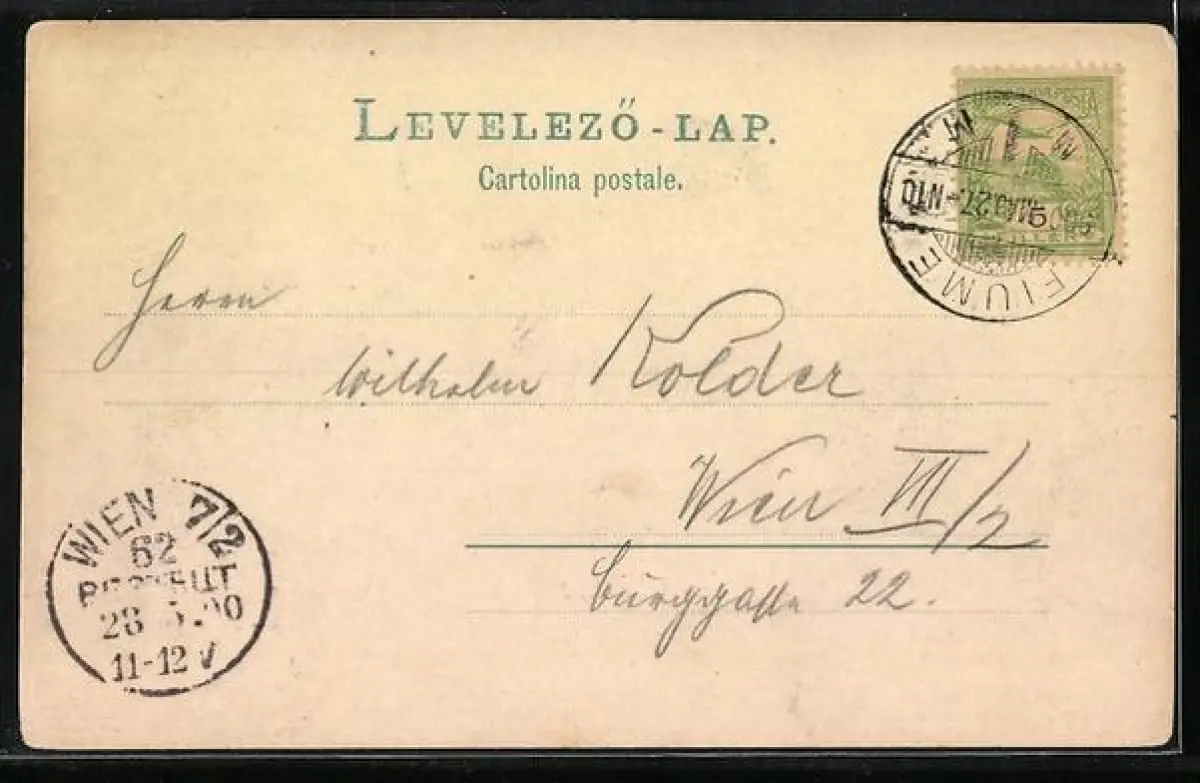 LEVELEZŐ-LAP.
Cartolina postale.
FIUME
Herrn
Wilhelm Kolder
Wien VII/2
Burggasse 22.
WIEN 7/2
62
BESTELLT
28 5.00
11-12 V